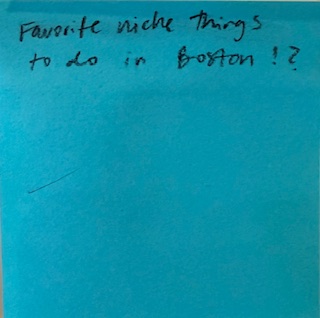 Favorite niche things
to do in Boston !?